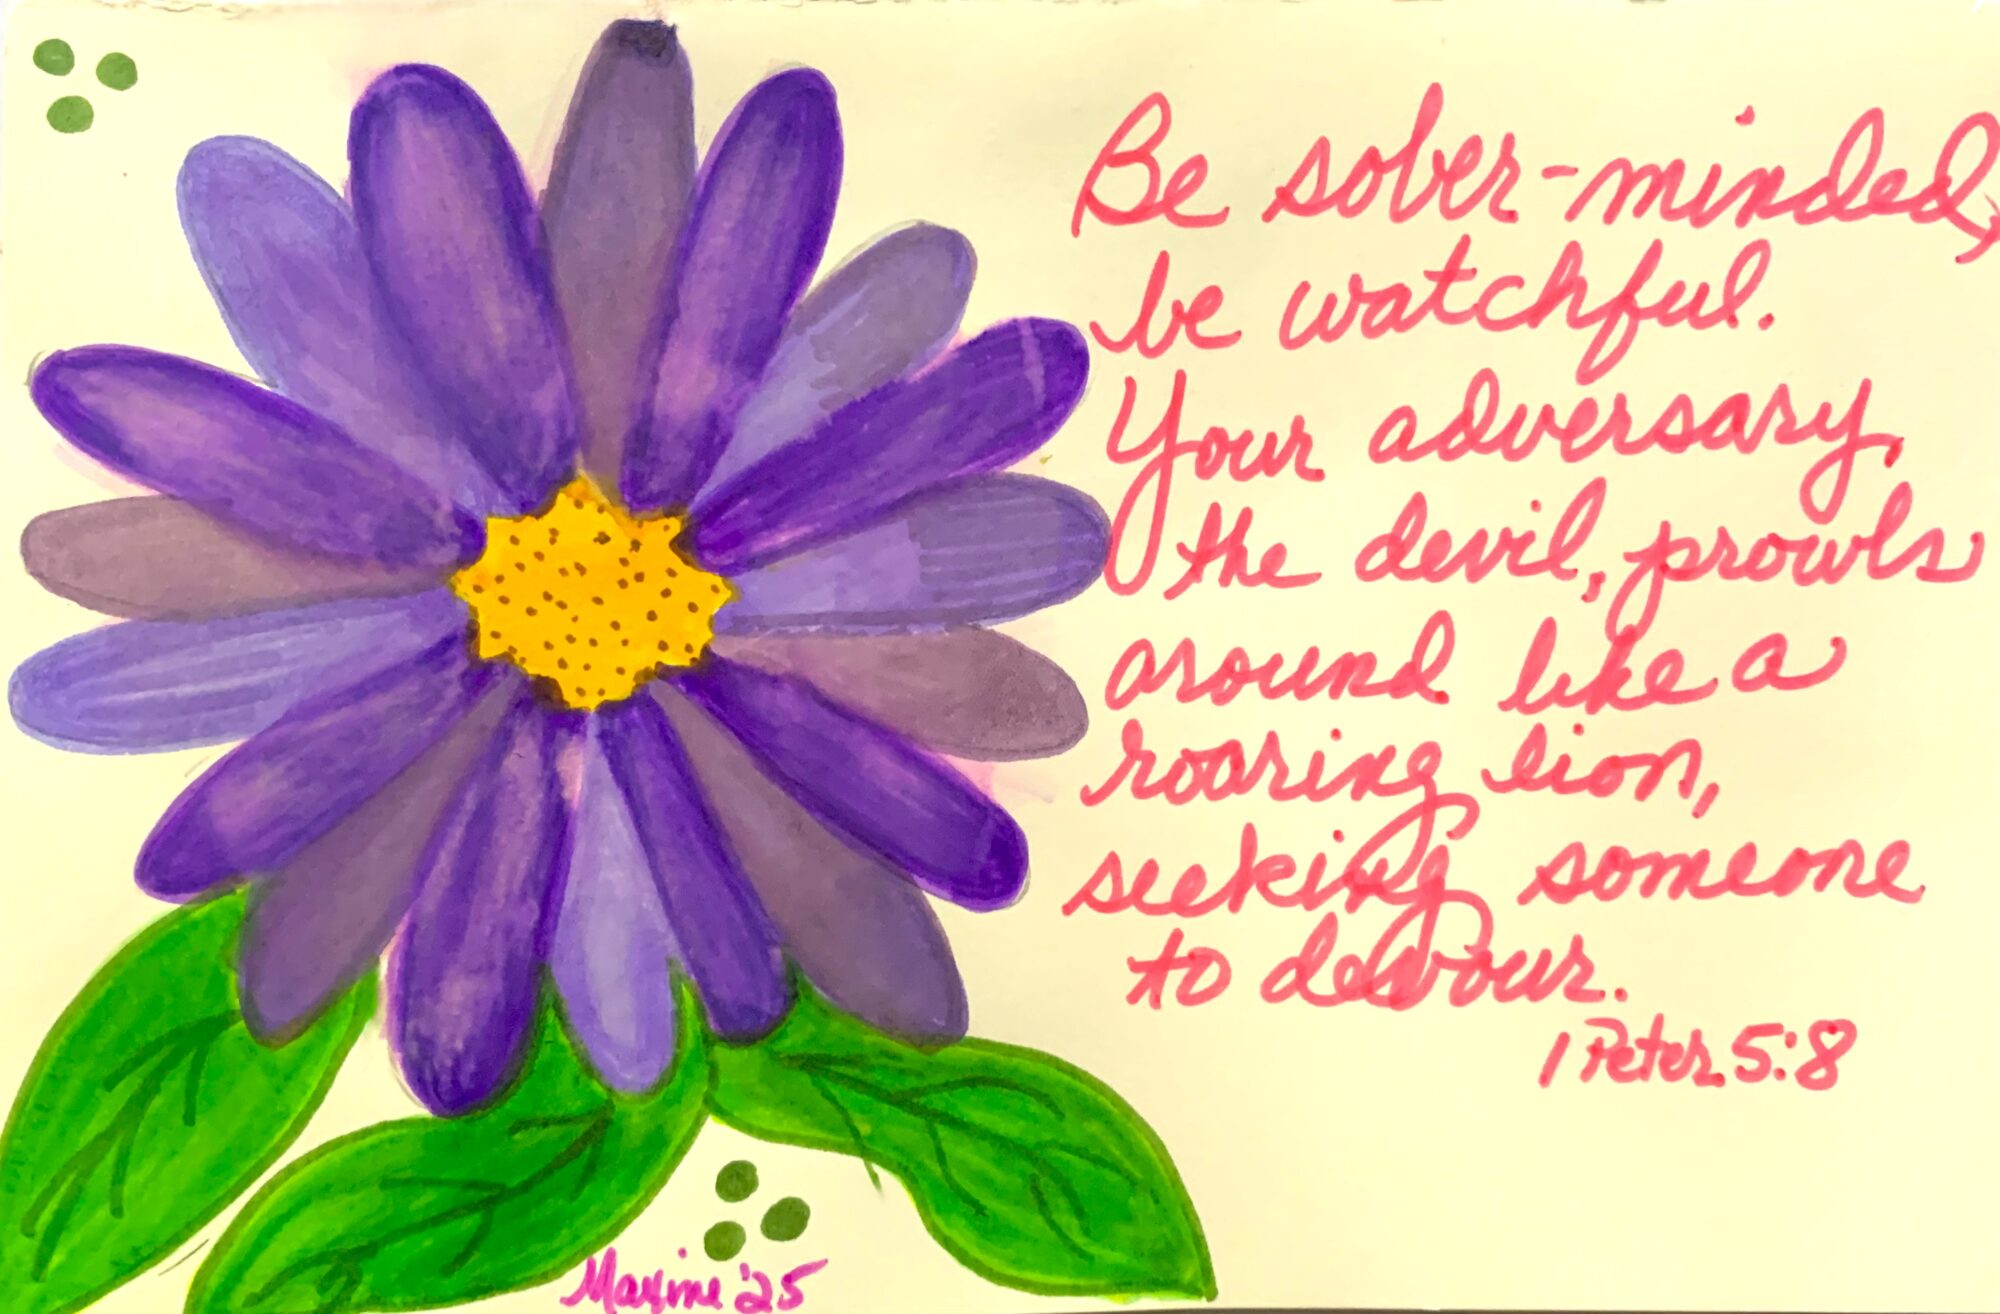 Be sober-minded,
be watchful.
Your adversary,
the devil, prowls
around like a
roaring lion,
seeking someone
to devour.
1 Peter 5:8
Maxine '25